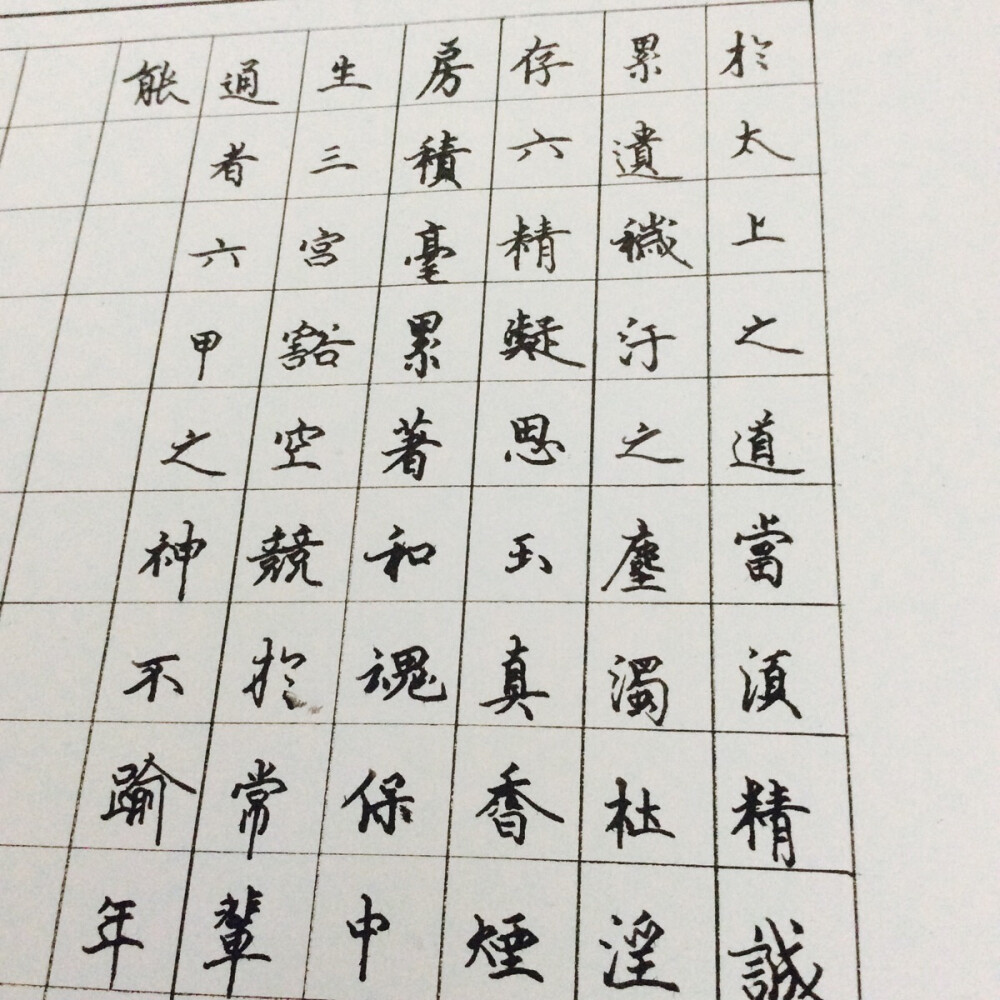 於太上之道當須精誠
累遺穢汙之塵濁杜淫
存六精凝思玉真香煙
房積毫累著和魂保中
生三宮豁空競於常輩
通者六甲之神不踰年
能